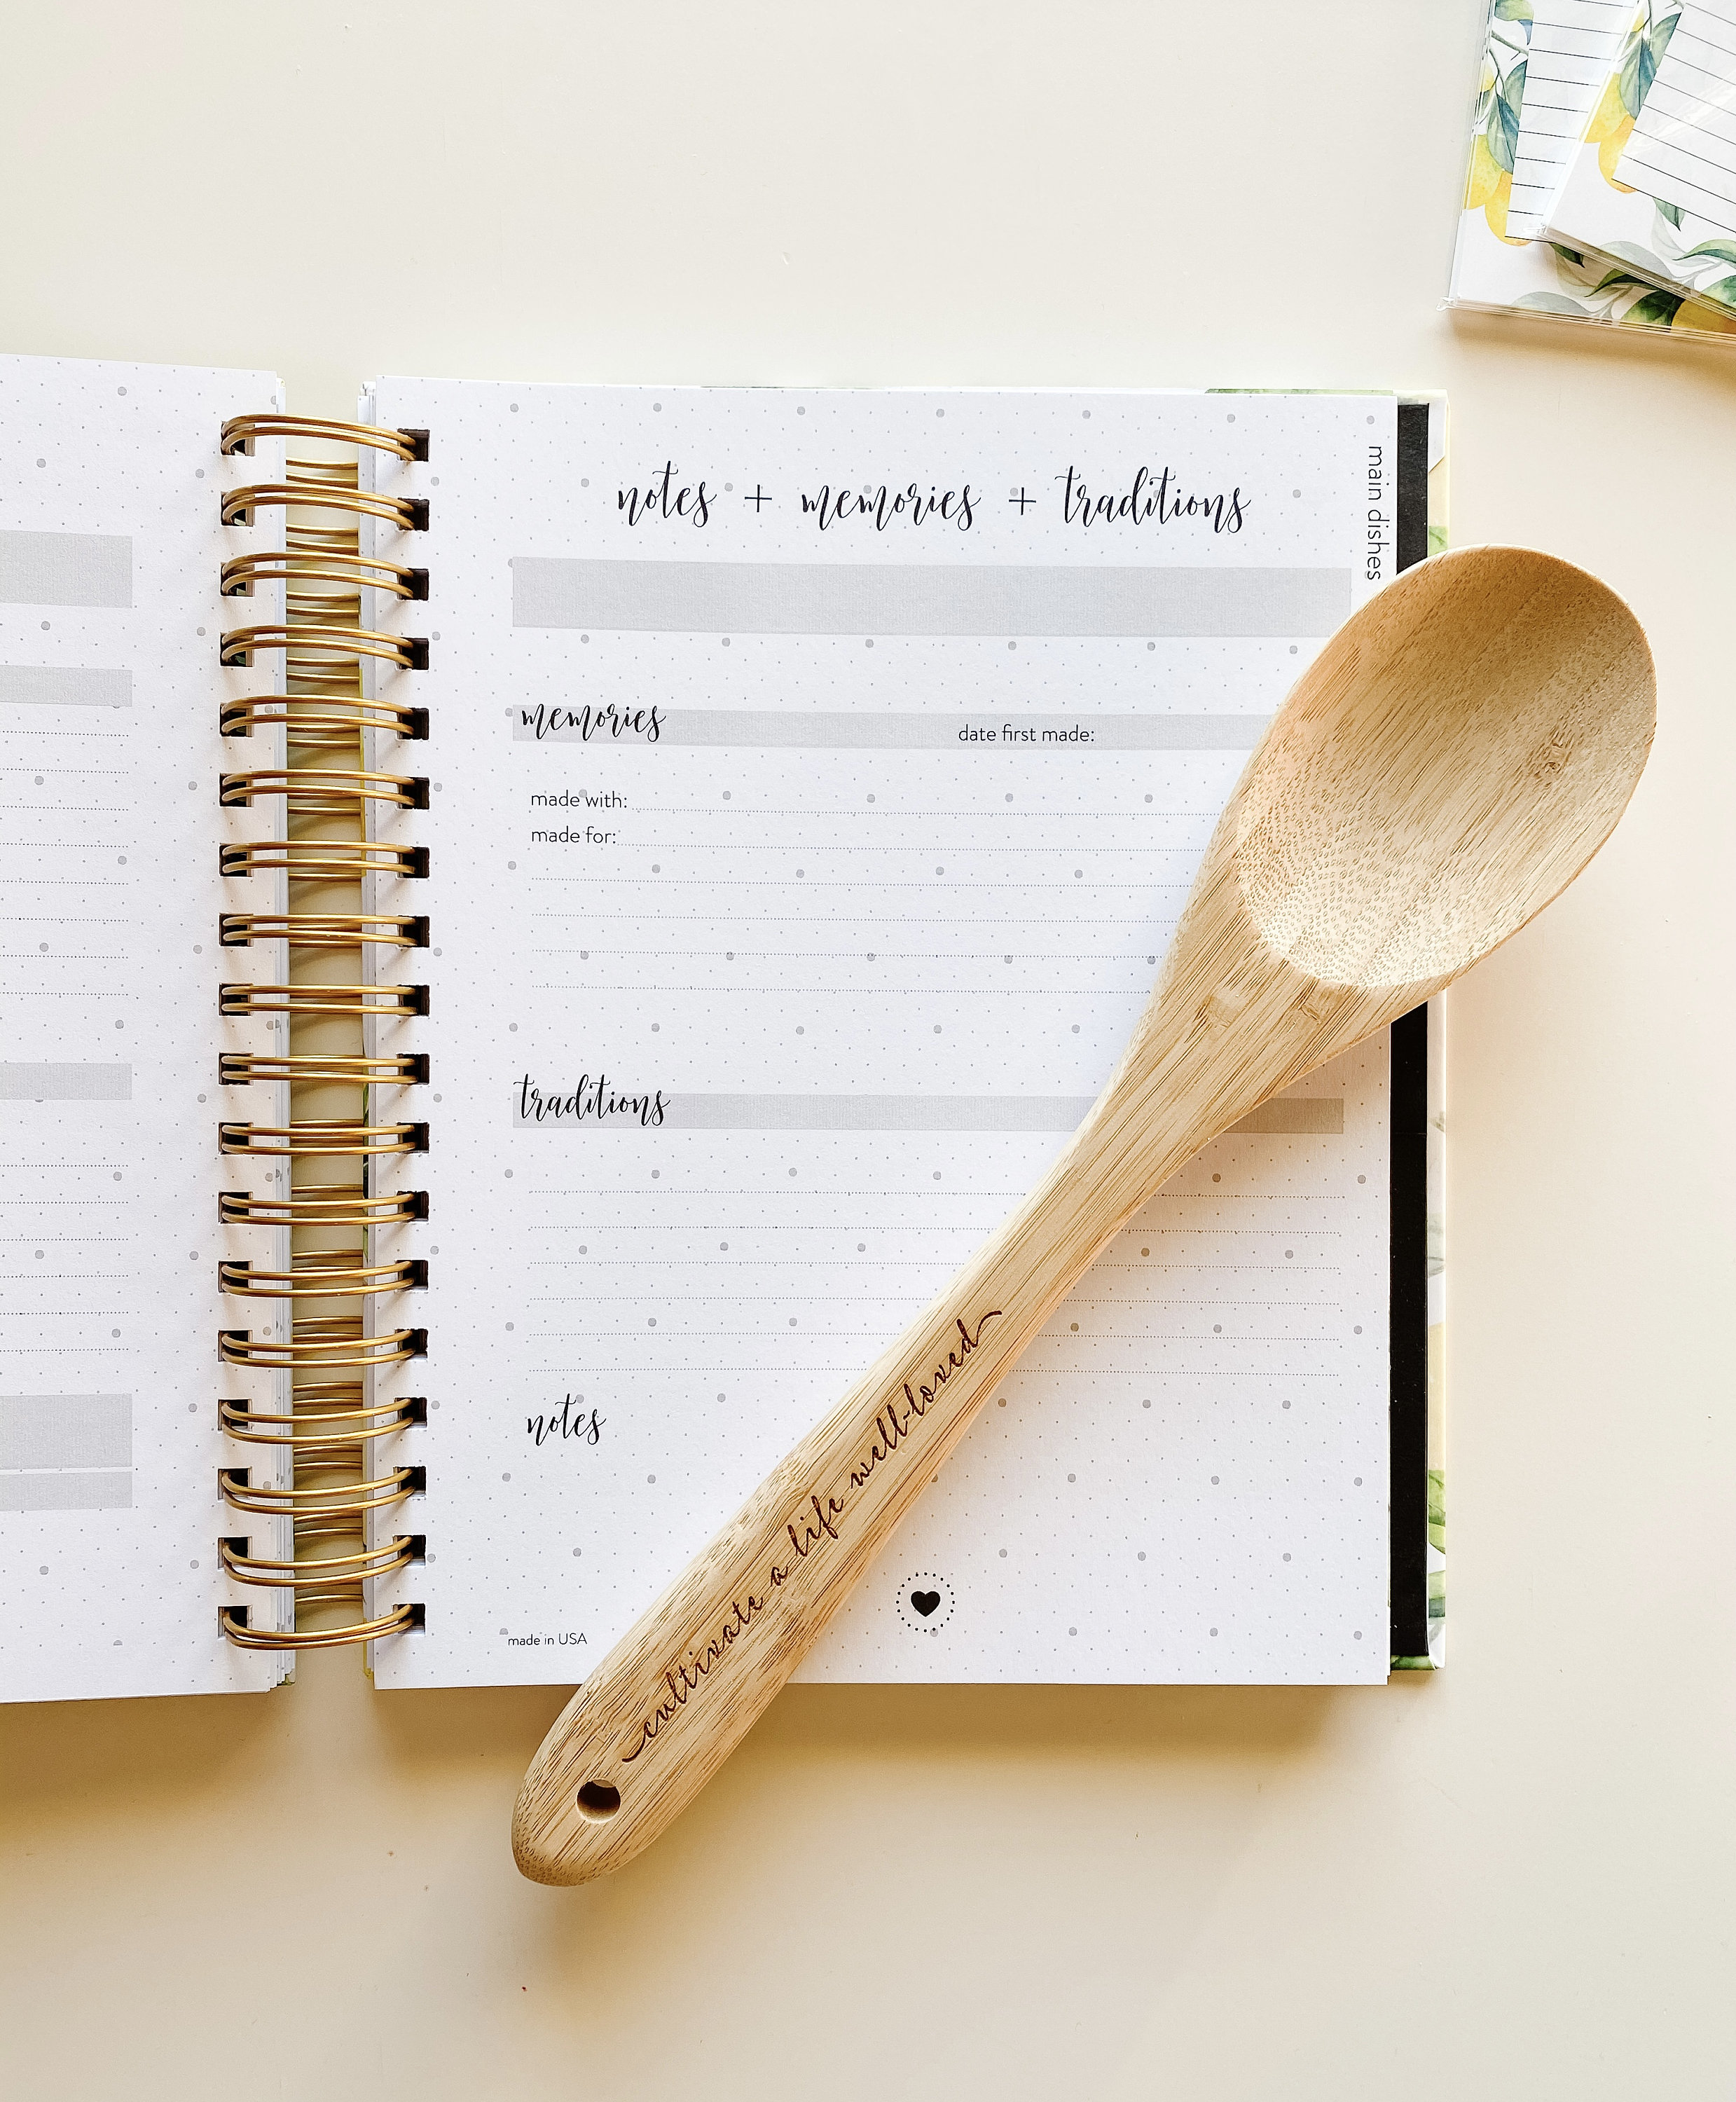 notes + memories + traditions
main dishes
memories
date first made:
made with:
made for:
traditions
notes
cultivate a life well-loved
made in USA